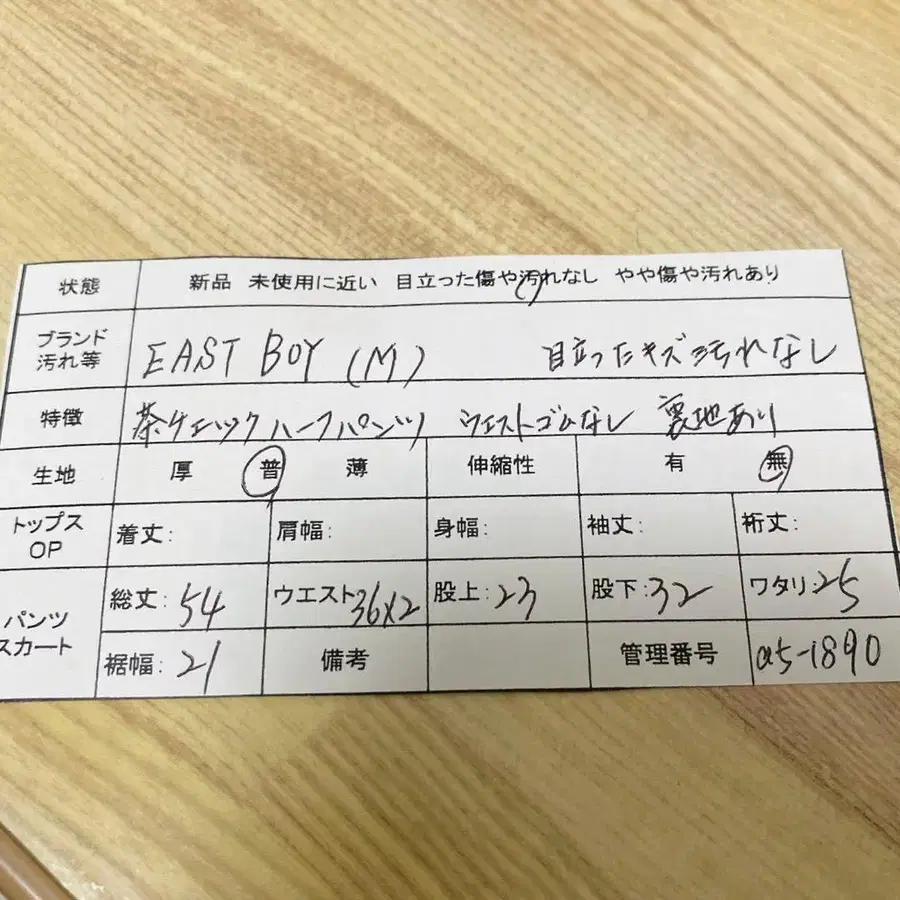 状態 新品 未使用に近い 目立った傷や汚れなし やや傷や汚れあり
ブランド
汚れ等 EAST BOY (M) 目立ったキズ汚れなし
特徴 茶チェックハーフパンツ ウエストゴムなし 裏地あり
生地 厚 普 薄 伸縮性 有 無
トップス
OP 着丈: 肩幅: 身幅: 袖丈: 裄丈:
パンツ
スカート 総丈: 54 ウエスト36×2 股上: 23 股下: 32 ワタリ: 25
裾幅: 21 備考 管理番号 a5-1890